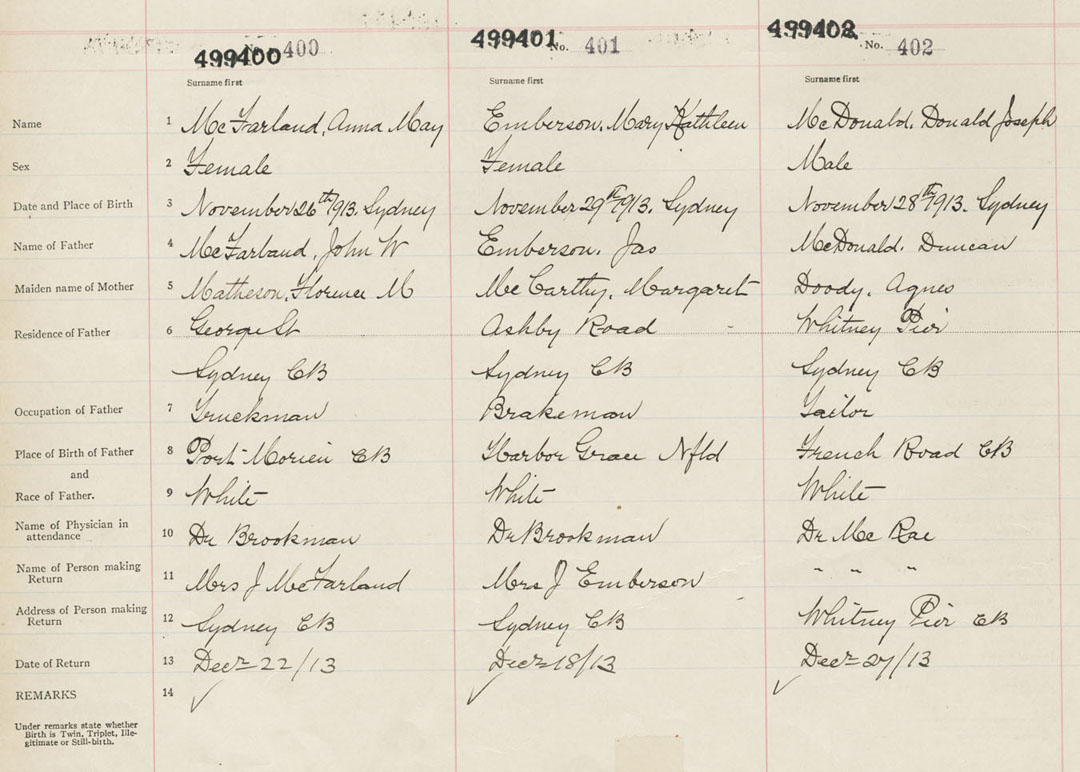 499400 No. 400 499401 No. 401 499402 No. 402
Surname first Surname first Surname first
Name 1 McFarland, Anna May Emberson, Mary Kathleen McDonald, Donald Joseph
Sex 2 Female Female Male
Date and Place of Birth 3 November 26th 1913. Sydney November 29th 1913. Sydney November 28th 1913. Sydney
Name of Father 4 McFarland, John W Emberson, Jas McDonald, Duncan
Maiden name of Mother 5 Matheson, Florence M McCarthy, Margaret Doody, Agnes
Residence of Father 6 George St Ashby Road Whitney Pier
Sydney CB Sydney CB Sydney CB
Occupation of Father 7 Truckman Brakeman Tailor
Place of Birth of Father 8 Port Morien CB Harbor Grace Nfld French Road CB
and
Race of Father. 9 White White White
Name of Physician in
attendance 10 Dr Brookman Dr Brookman Dr McRae
Name of Person making
Return 11 Mrs J McFarland Mrs J Emberson " " "
Address of Person making
Return 12 Sydney CB Sydney CB Whitney Pier CB
Date of Return 13 Decr 22/13 Decr 18/13 Decr 27/13
REMARKS 14
Under remarks state whether
Birth is Twin, Triplet, Ille-
gitimate or Still-birth.